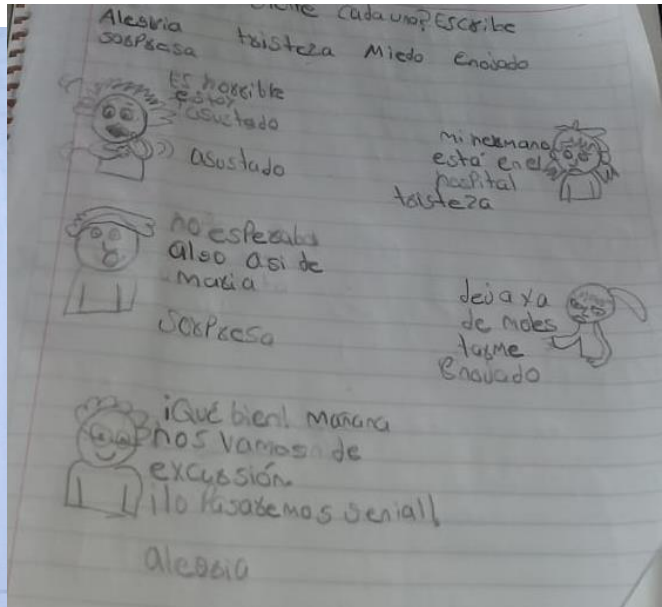 cada uno? Escribe
Alegria
sorpresa tristeza Miedo enojado
Es horrible
estoy
asustado
asustado
mi hermano
está en el
hospital
tristeza
no esperaba
algo asi de
maria
sorpresa
deja ya
de moles
tarme
enojado
¡Qué bien! Mañana
nos vamos de
excursión
¡lo Pasaremos genial!
alegria